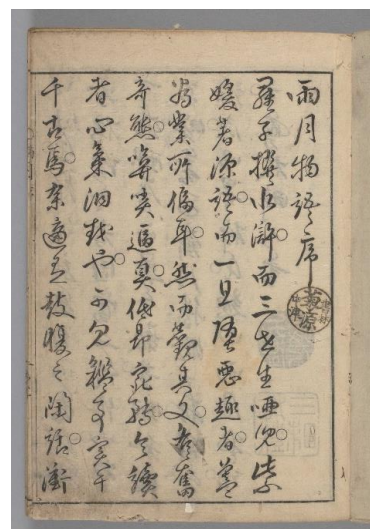 雨月物語序
羅子撰水滸。而三世生唖児。紫
媛著源語。而一旦堕悪趣者。蓋
為業所偪耳。然而観其文。各奮
奇態。哢逼真。低昂宛転。令読
者心気洞越也。可見鑑事実于
千古焉。余適有鼓腹之閑話。衝